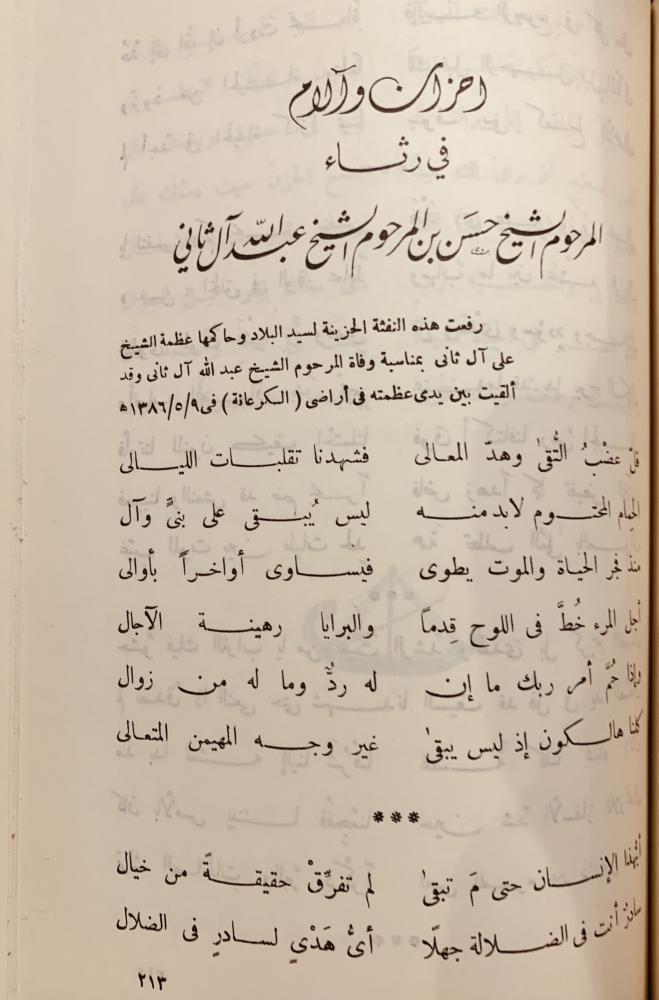 احزان وآلام
في رثاء
المرحوم الشيخ حسن بن المرحوم الشيخ عبد الله آل ثاني
رفعت هذه النفثة الحزينة لسيد البلاد وحاكمها عظمة الشيخ
على آل ثانى بمناسبة وفاة المرحوم الشيخ عبد الله آل ثانى وقد
ألقيت بين يدى عظمته فى أراضى ( السكرعانة ) فى ١٣٨٦/٥/٩ه
فلّ عضْبُ التُّقىٰ وهدّ المعالى فشهدنا تقلبات الليالى
الحِمام المحتوم لابد منه ليس يُبقى على بنىٍّ وآل
منذ فجر الحياة والموت يطوى فيساوى أواخراً بأوالى
أجل المرء خُطَّ فى اللوح قِدماً والبرايا رهينة الآجال
وإذا حُمَّ أمر ربك ما إن له ردٌّ وما له من زوال
كلنا هالكون إذ ليس يبقىٰ غير وجه المهيمن المتعالى
***
أيُّهذا الإنسان حتى مَ تبقىٰ لم تفرِّقْ حقيقةً من خيال
سادرٌ أنت فى الضلالة جهلًا أىُّ هَدْيٍ لسادرٍ فى الضلال
٢١٣